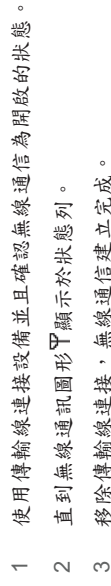 1 使用傳輸線連接設備並且確認無線通信為開啟的狀態。
2 直到無線通訊圖形顯示於狀態列。
3 移除傳輸線連接，無線通信建立完成。